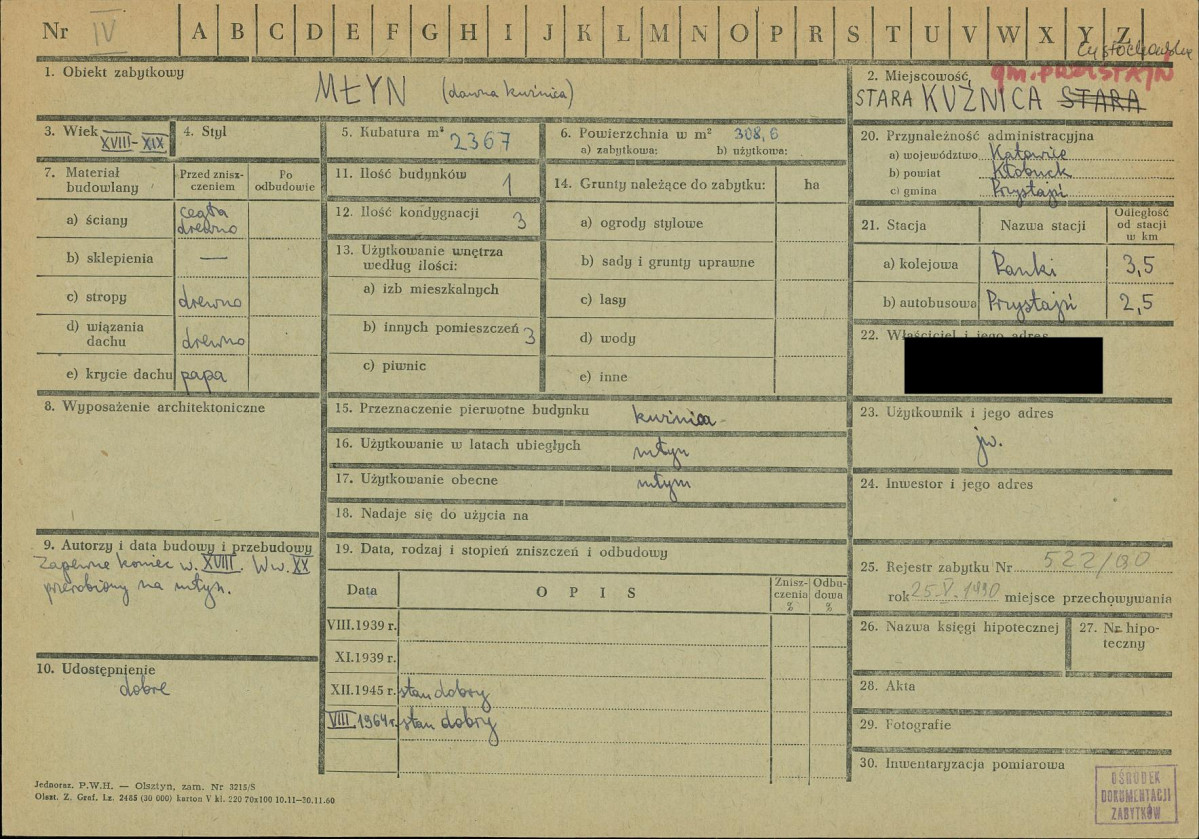 Nr IV A B C D E F G H I J K L M N O P R S T U V W X Y Z
1. Obiekt zabytkowy
MŁYN (dawna kuźnica)
2. Miejscowość
gm. PRZYSTAJŃ
STARA KUŹNICA STARA
3. Wiek XVIII-XIX
4. Styl
5. Kubatura m³ 2367
6. Powierzchnia w m² 308,6
a) zabytkowa: b) użytkowa:
7. Materiał budowlany
Przed zniszczeniem
Po odbudowie
a) ściany cegła drewno
b) sklepienia —
c) stropy drewno
d) wiązania dachu drewno
e) krycie dachu papa
8. Wyposażenie architektoniczne
9. Autorzy i data budowy i przebudowy
Zapewne koniec w. XVIII. W w. XX
przerobiony na młyn.
10. Udostępnienie
dobre
11. Ilość budynków 1
12. Ilość kondygnacji 3
13. Użytkowanie wnętrza
według ilości:
a) izb mieszkalnych
b) innych pomieszczeń 3
c) piwnic
14. Grunty należące do zabytku: ha
a) ogrody stylowe
b) sady i grunty uprawne
c) lasy
d) wody
e) inne
15. Przeznaczenie pierwotne budynku kuźnica
16. Użytkowanie w latach ubiegłych młyn
17. Użytkowanie obecne młyn
18. Nadaje się do użycia na
19. Data, rodzaj i stopień zniszczeń i odbudowy
Data OPIS Zniszczenia % Odbudowa %
VIII.1939 r.
XI.1939 r.
XII.1945 r. stan dobry
VIII 1964 r. stan dobry
20. Przynależność administracyjna
a) województwo Katowice
b) powiat Kłobuck
c) gmina Przystajń
21. Stacja Nazwa stacji Odległość od stacji w km
a) kolejowa Panki 3,5
b) autobusowa Przystajń 2,5
22. Właściciel i jego adres
23. Użytkownik i jego adres
jw.
24. Inwestor i jego adres
25. Rejestr zabytku Nr 522/90
rok 25.V.1990 miejsce przechowywania
26. Nazwa księgi hipotecznej
27. Nr hipoteczny
28. Akta
29. Fotografie
30. Inwentaryzacja pomiarowa
Jednoraz. P.W.H. — Olsztyn, zam. Nr 3215/S
Olszt. Z. Graf. Lz. 2485 (30 000) karton V kl. 220 70x100 10.11—20.11.60
OŚRODEK
DOKUMENTACJI
ZABYTKÓW